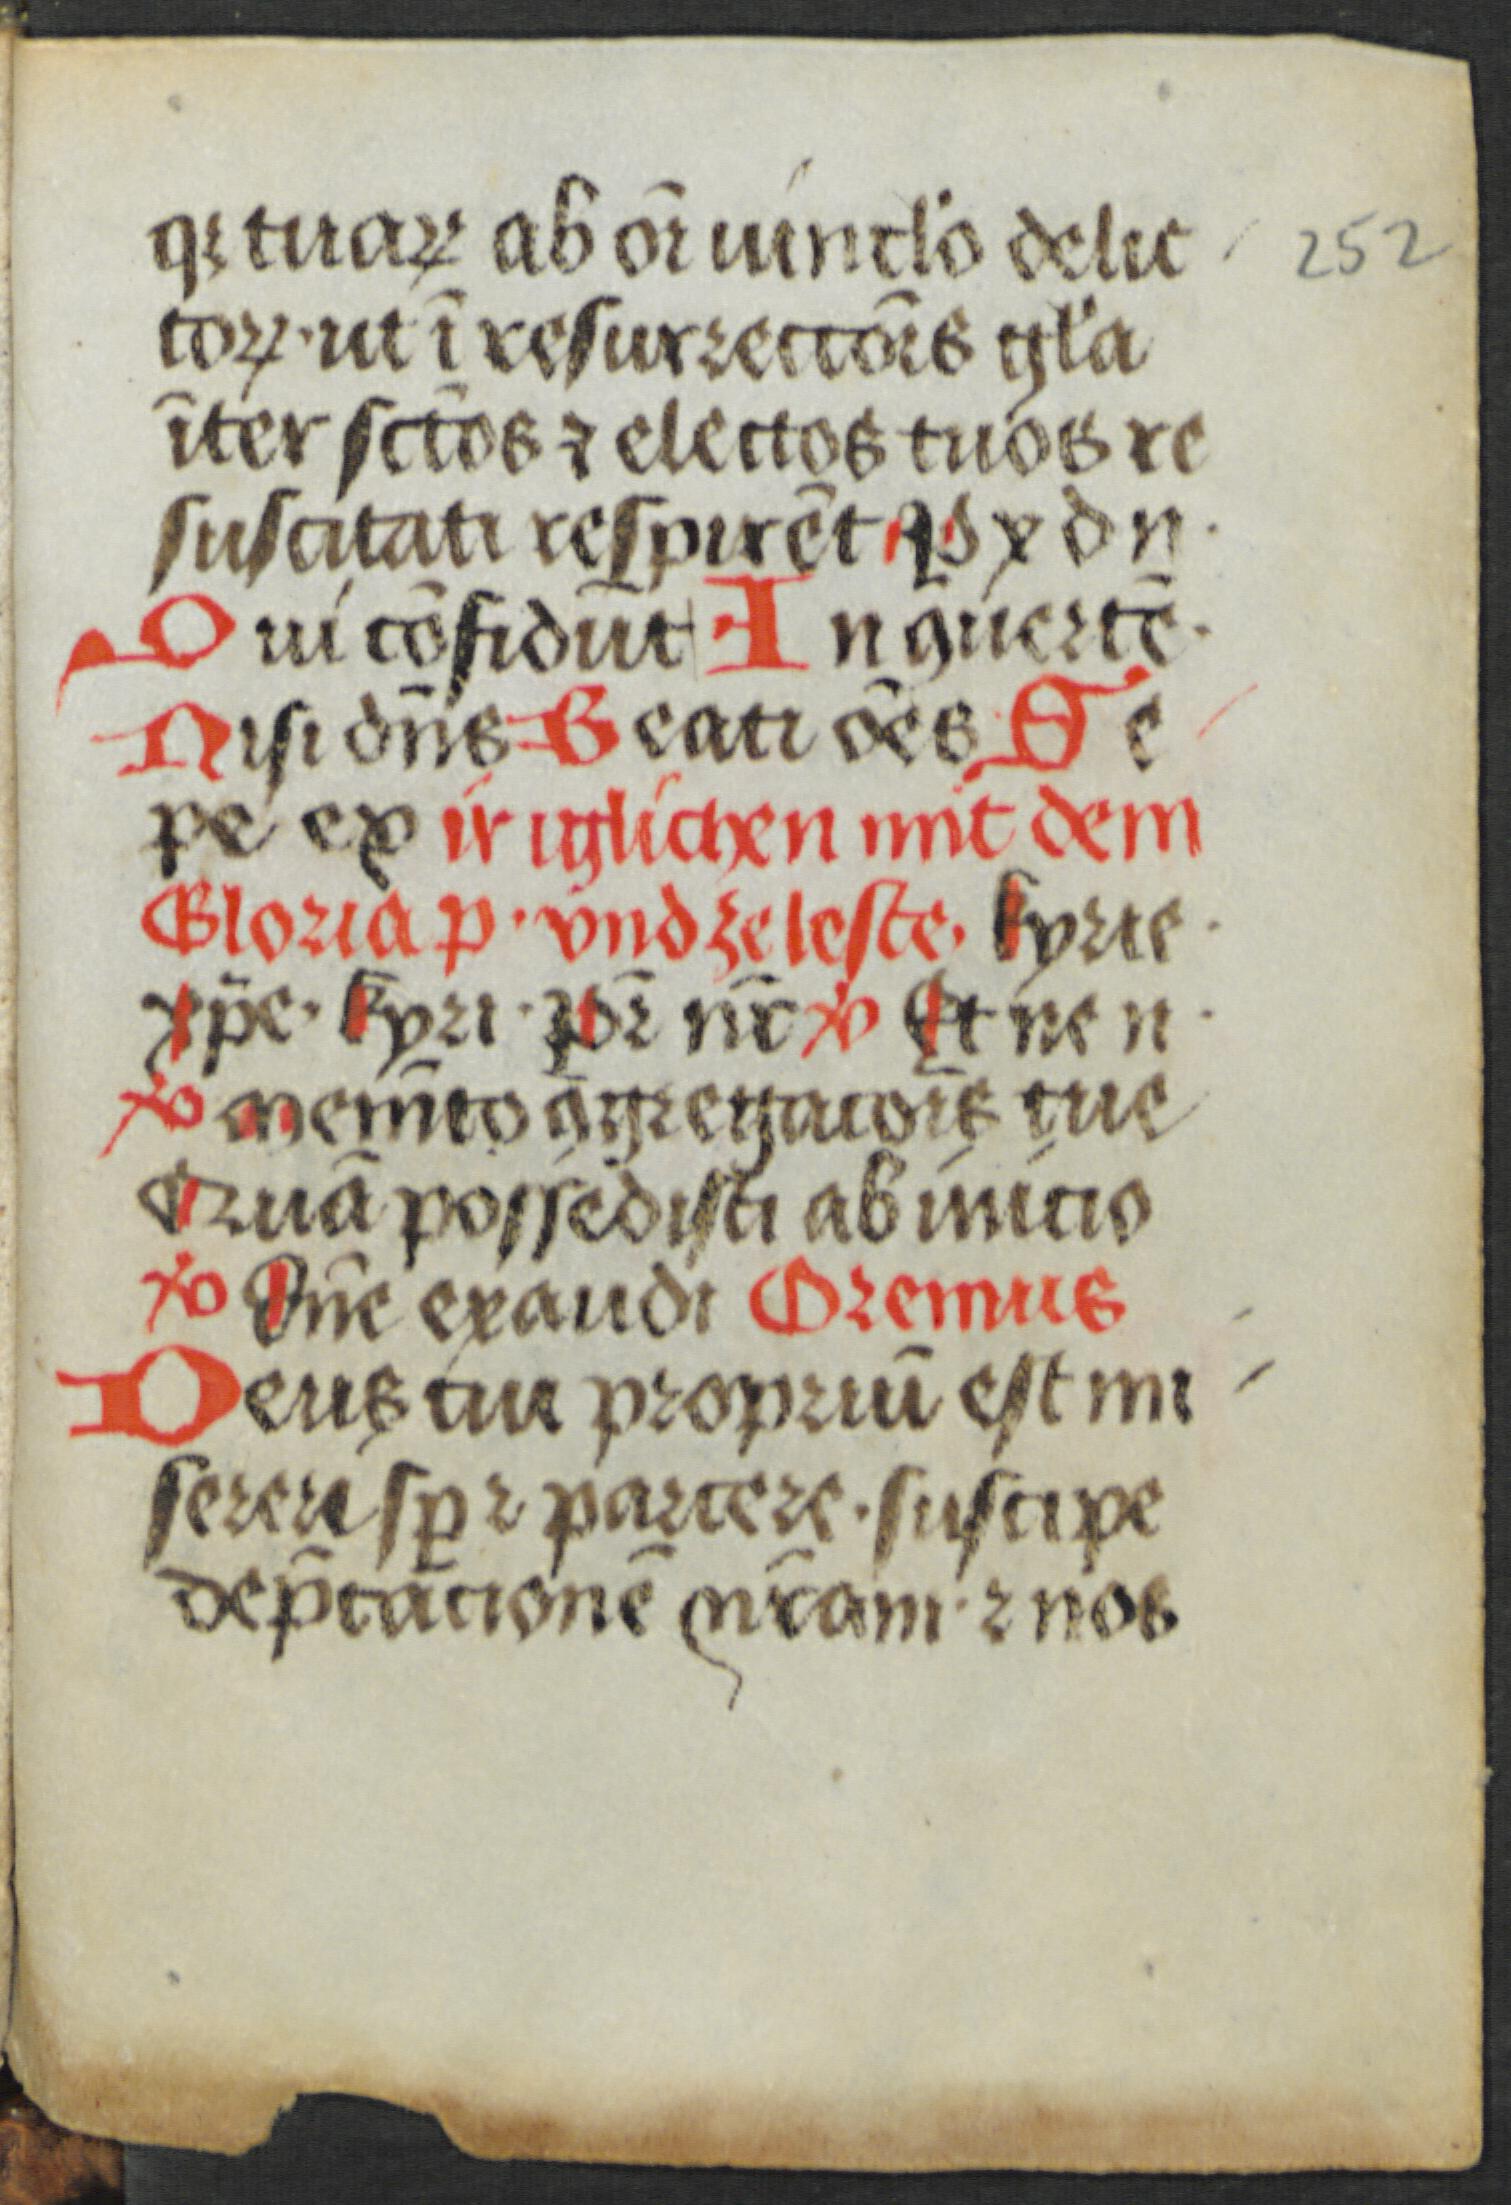 qꝫ tuaꝝ ab oı̄ uinclo delic 252
toꝝ · ut ī resurrectōıs gl̄a
īter sctōs ⁊ electos tuos re
suscitati respirēt P x d n ·
Qui cōfidūt In ꝯuertē ·
Nisi dn̄s Beati ōes Se
pe ex ir iglichen mit dem
Gloria p · vnd ze leste · kyrie ·
xp̄e · kyri · Pr̄ nr̄ ℣ Et ne n ·
℣ Mem̄to ꝯgregacōıs tue
Quā possedisti ab inicio
℣ Dn̄e exaudi Oremus
Deus cui propriū est mi
sereri sꝑ ⁊ parcere · suscipe
dep̄cacionē nr̄am · ⁊ nos